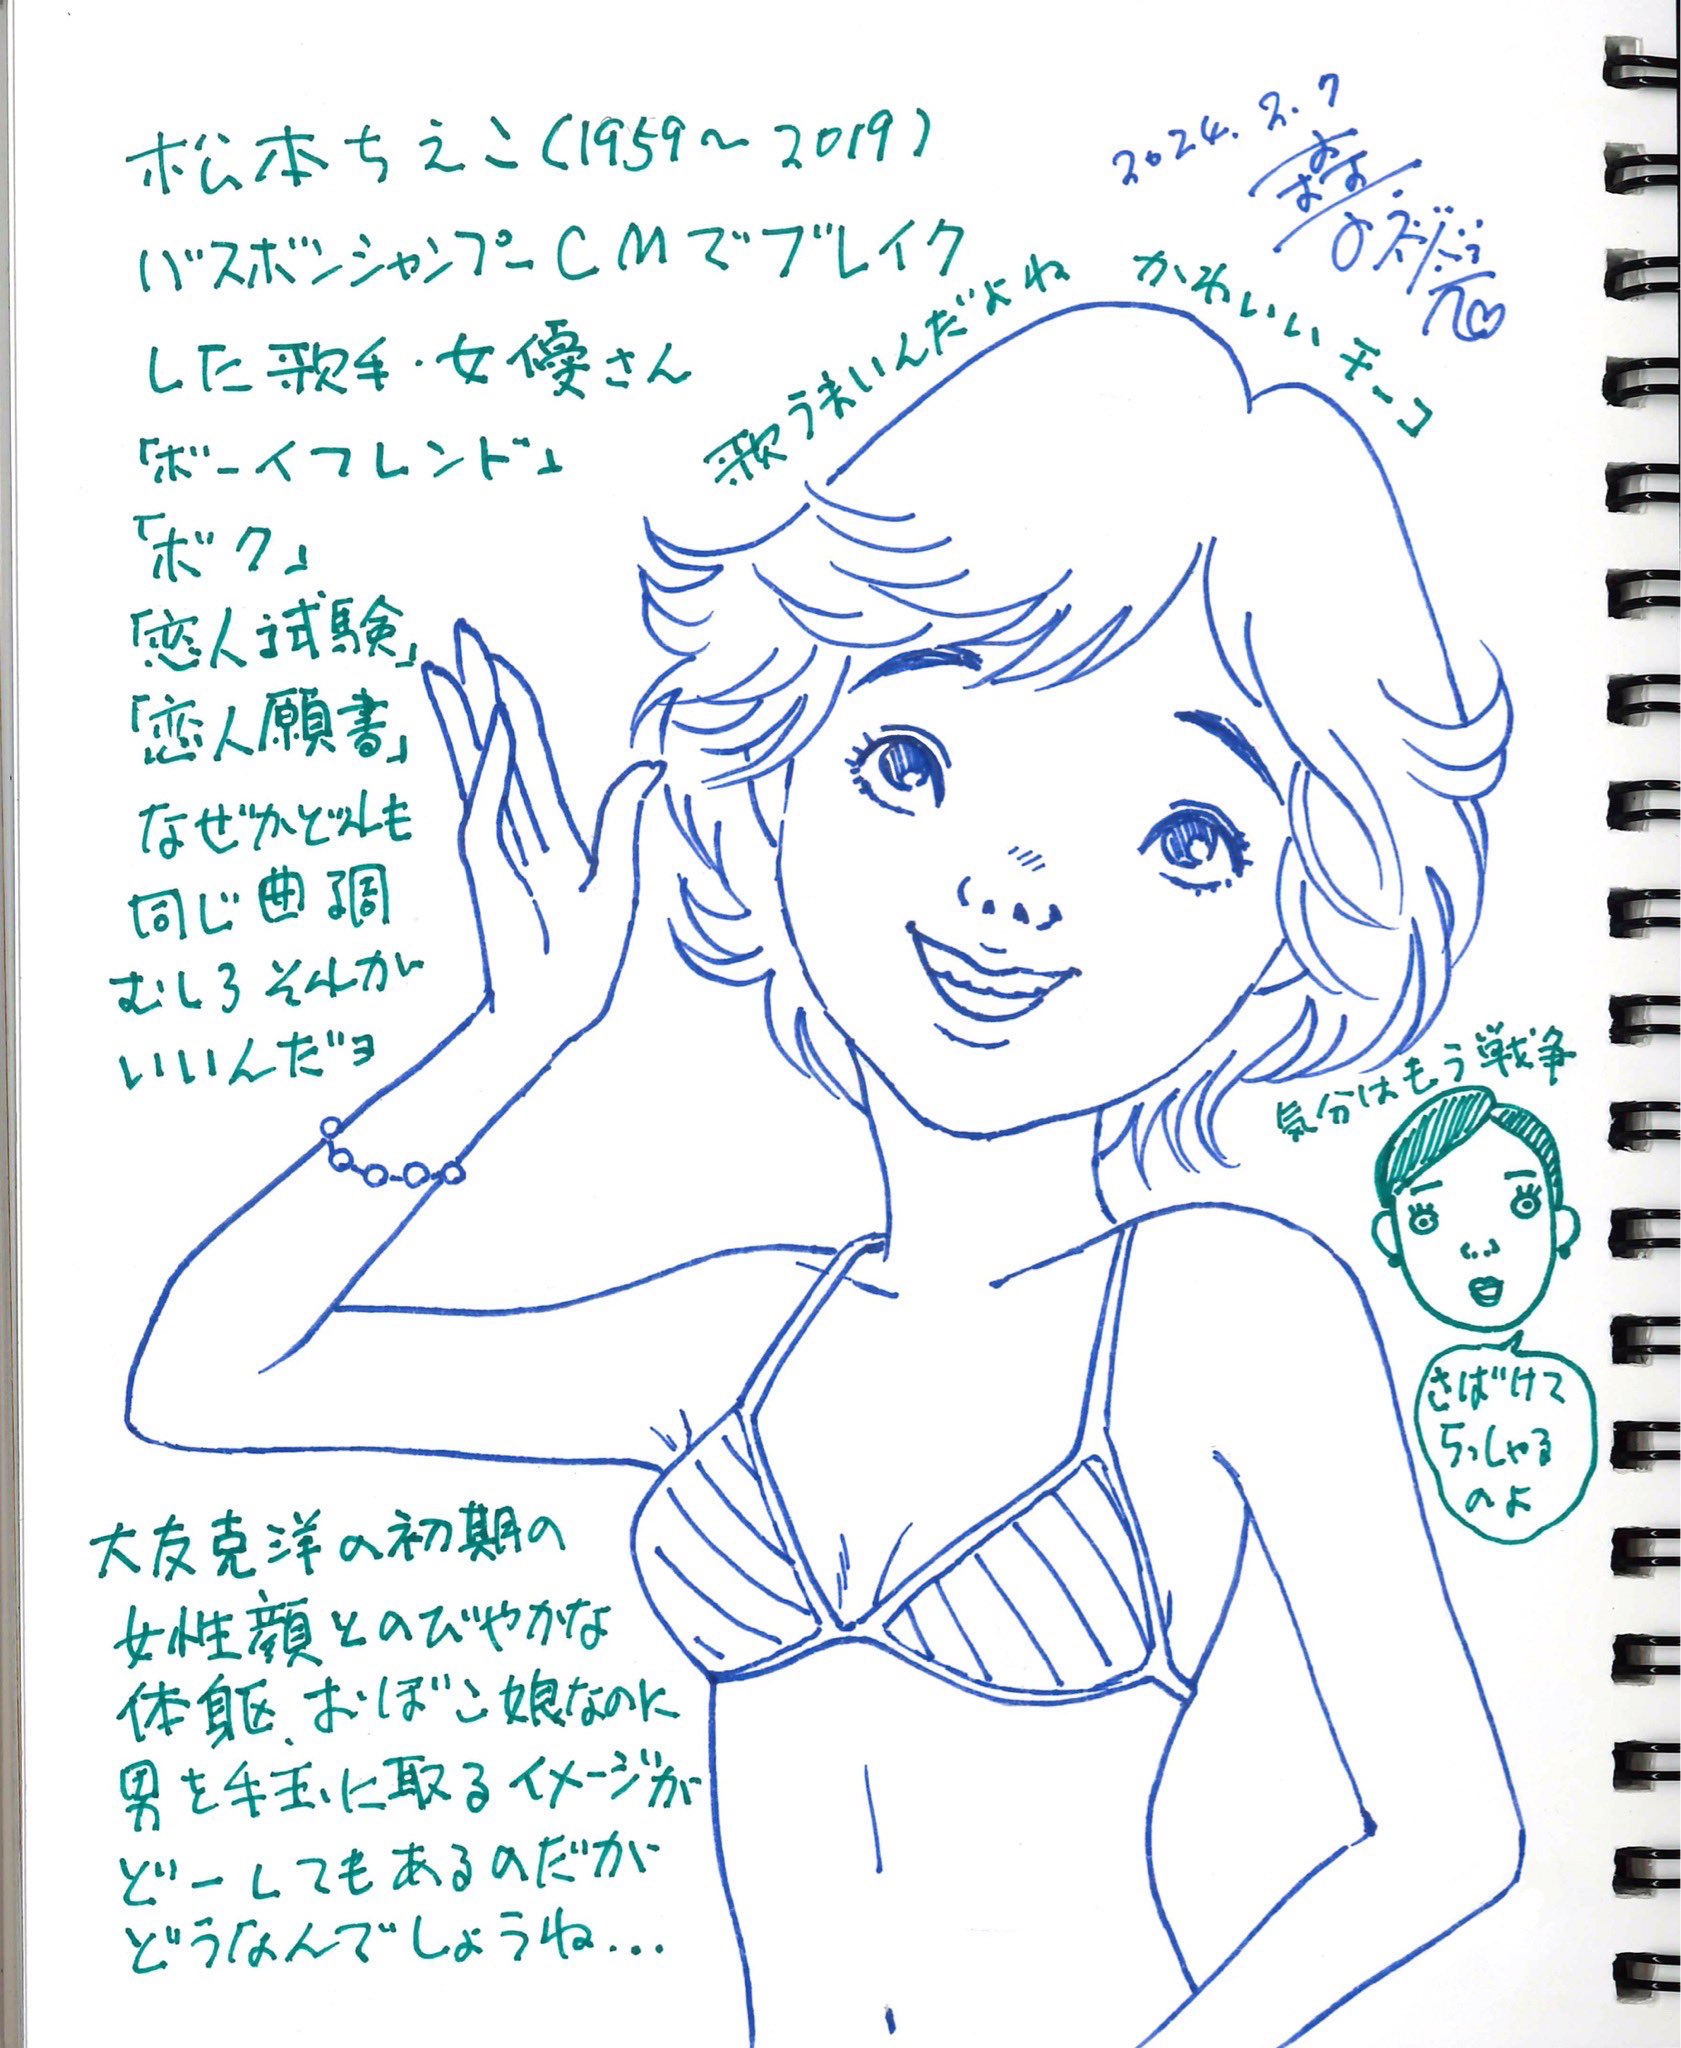 松本ちえこ(1959〜2019)
バスボンシャンプーCMでブレイク
した歌手・女優さん
「ボーイフレンド」
「ボク」
「恋人試験」
「恋人願書」
なぜかどれも
同じ曲調
むしろそれが
いいんだヨ
2024.2.7
歌うまいんだよね かわいいチーコ
気分はもう戦争
さばけて
らっしゃる
のよ
大友克洋の初期の
女性顔とのびやかな
体躯、おぼこ娘なのに
男を手玉に取るイメージが
どーしてもあるのだが
どうなんでしょうね...